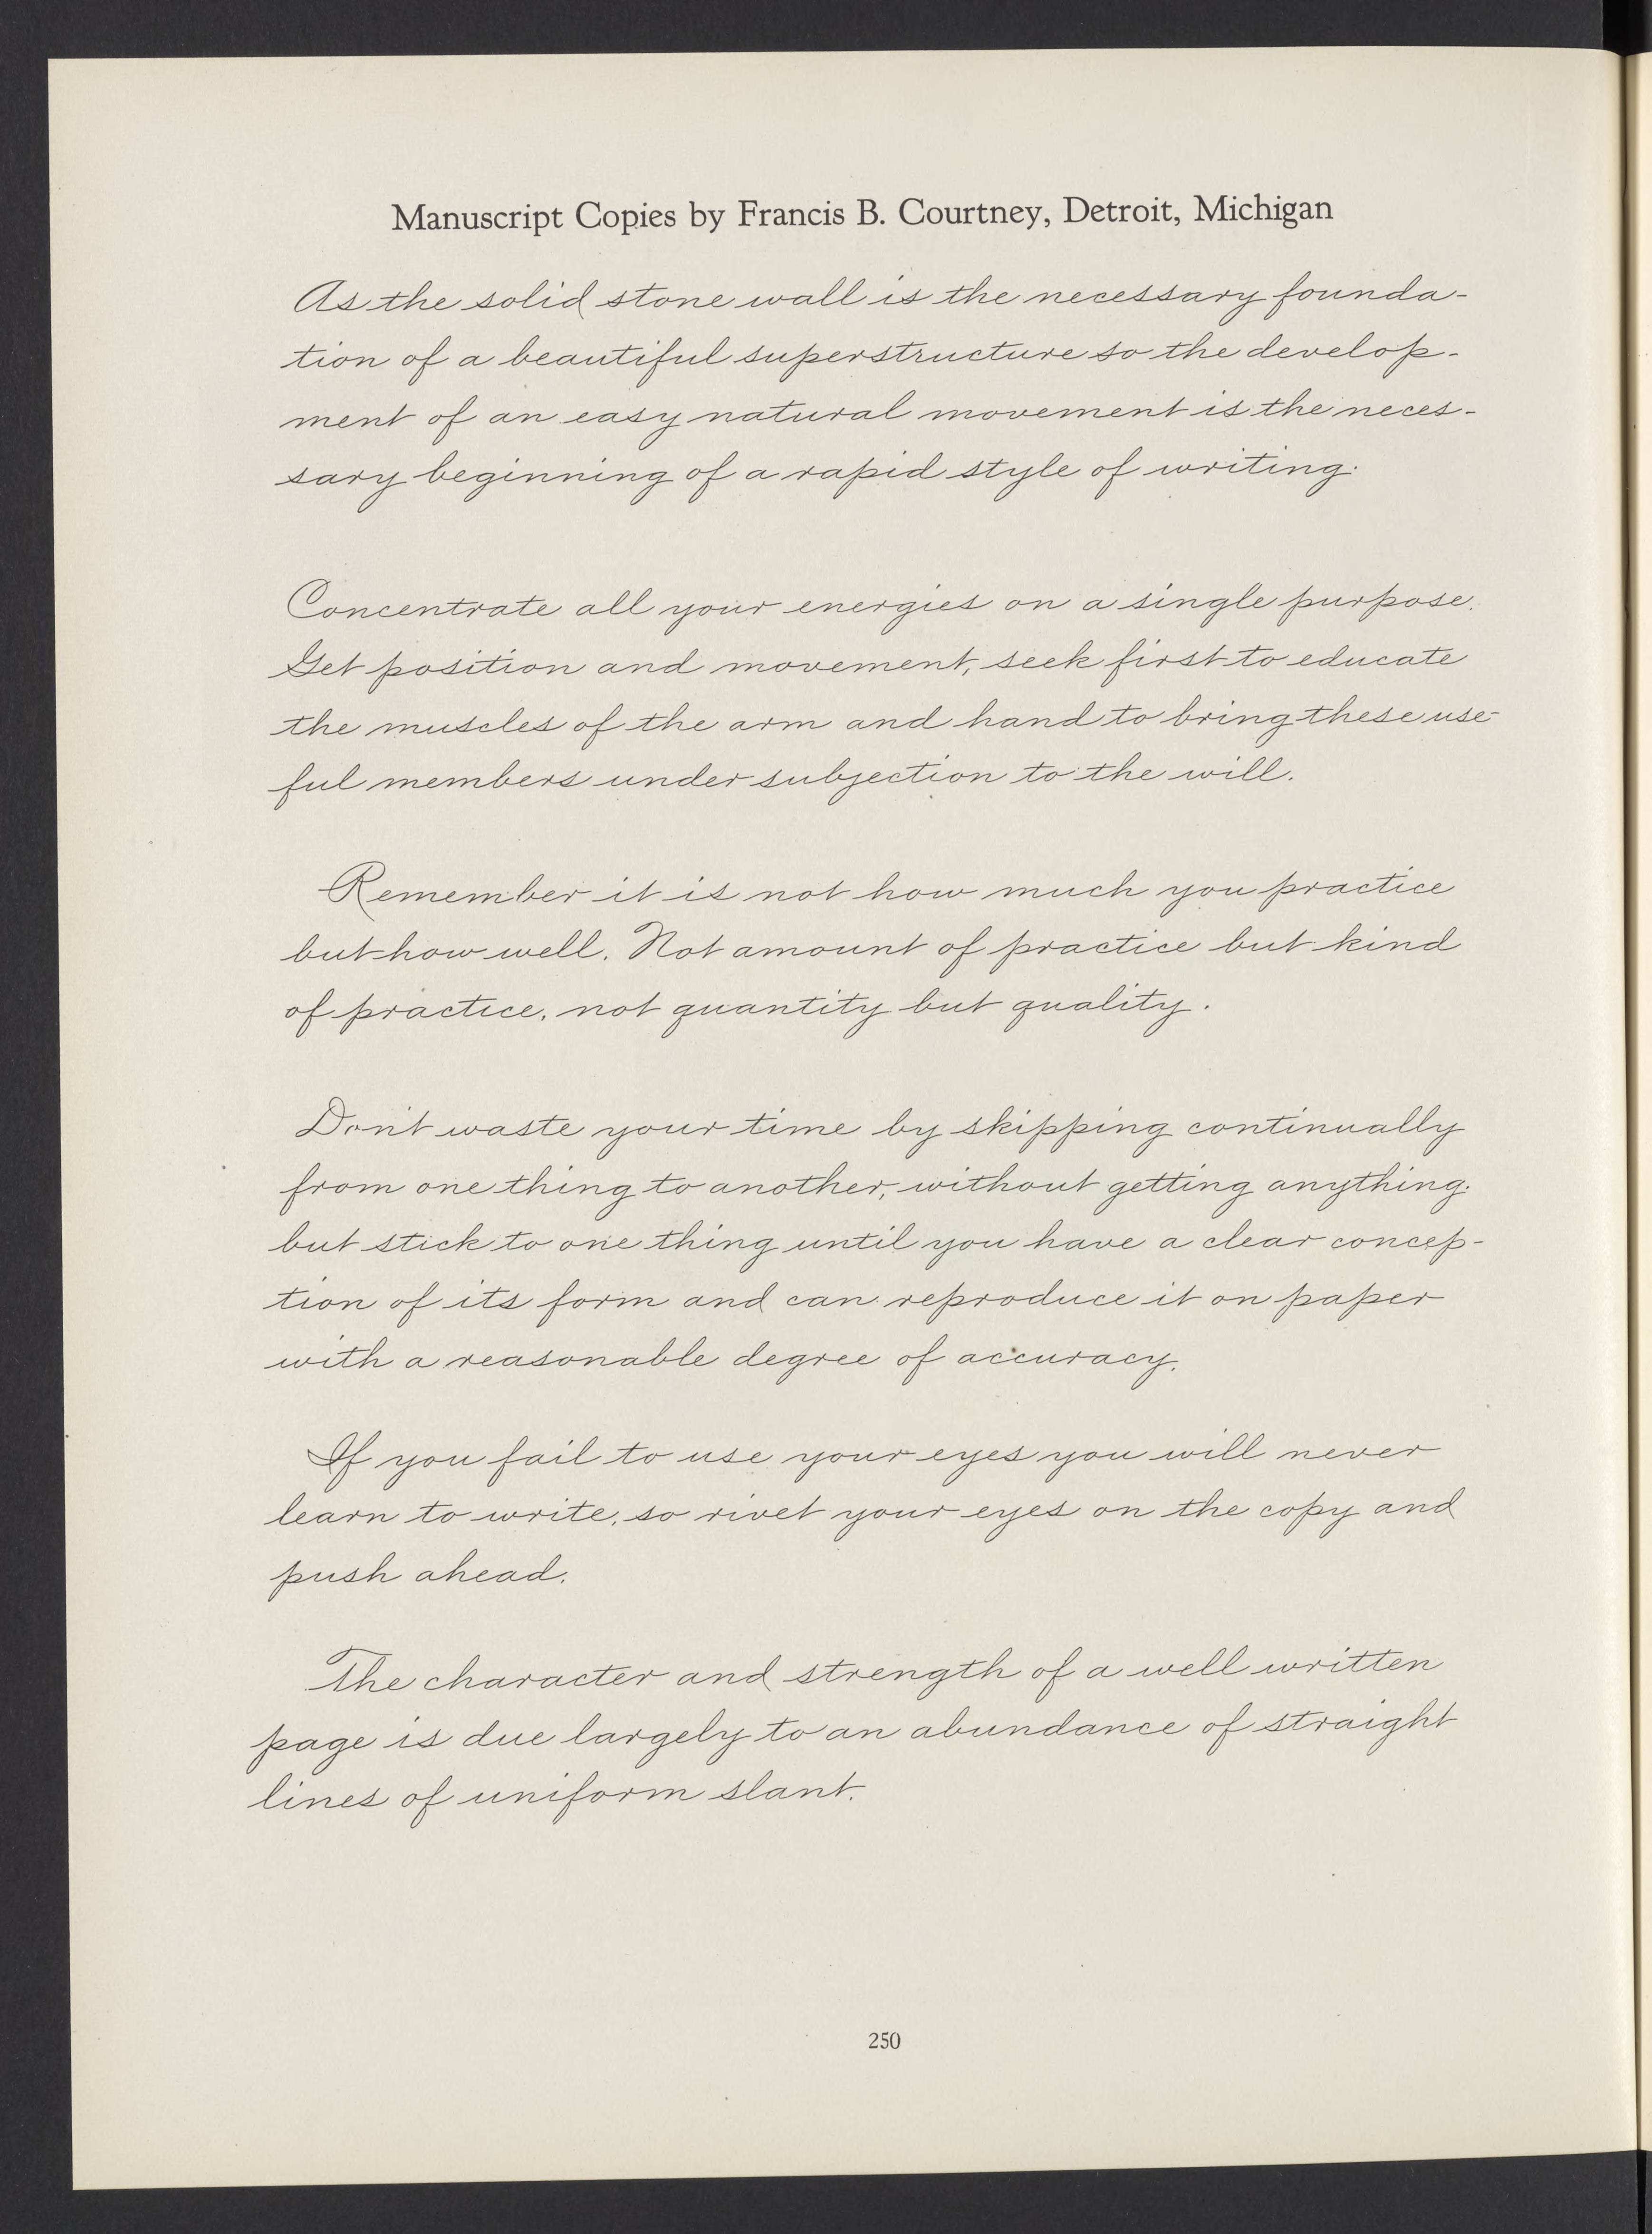 Manuscript Copies by Francis B. Courtney, Detroit, Michigan
As the solid stone wall is the necessary founda-
tion of a beautiful superstructure so the develop-
ment of an easy natural movement is the neces-
sary beginning of a rapid style of writing.
Concentrate all your energies on a single purpose.
Get position and movement, seek first to educate
the muscles of the arm and hand to bring these use-
ful members under subjection to the will.
Remember it is not how much you practice
but how well. Not amount of practice but kind
of practice, not quantity but quality.
Don't waste your time by skipping continually
from one thing to another, without getting anything.
but stick to one thing until you have a clear concep-
tion of its form and can reproduce it on paper
with a reasonable degree of accuracy.
If you fail to use your eyes you will never
learn to write, so rivet your eyes on the copy and
push ahead.
The character and strength of a well written
page is due largely to an abundance of straight
lines of uniform slant.
250